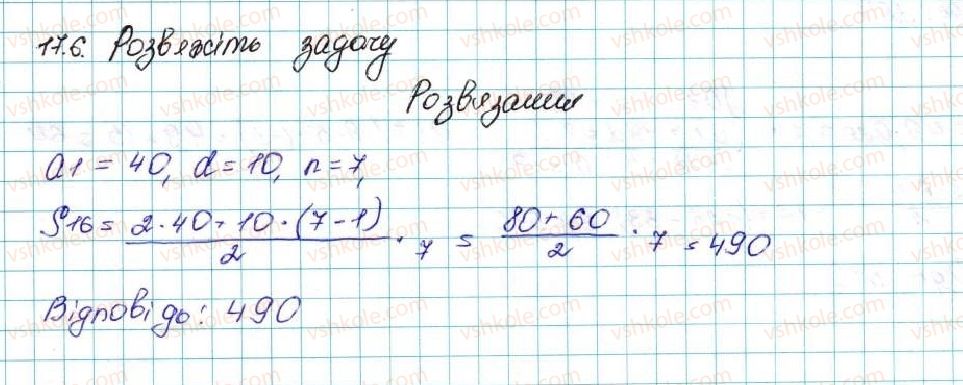 17.6. Розвяжіть задачу
Розвязання
a1 = 40, d = 10, n = 7,
S16 = 2·40+10·(7-1)/2 · 7 = 80+60/2 · 7 = 490
Відповідь: 490
vshkole.com